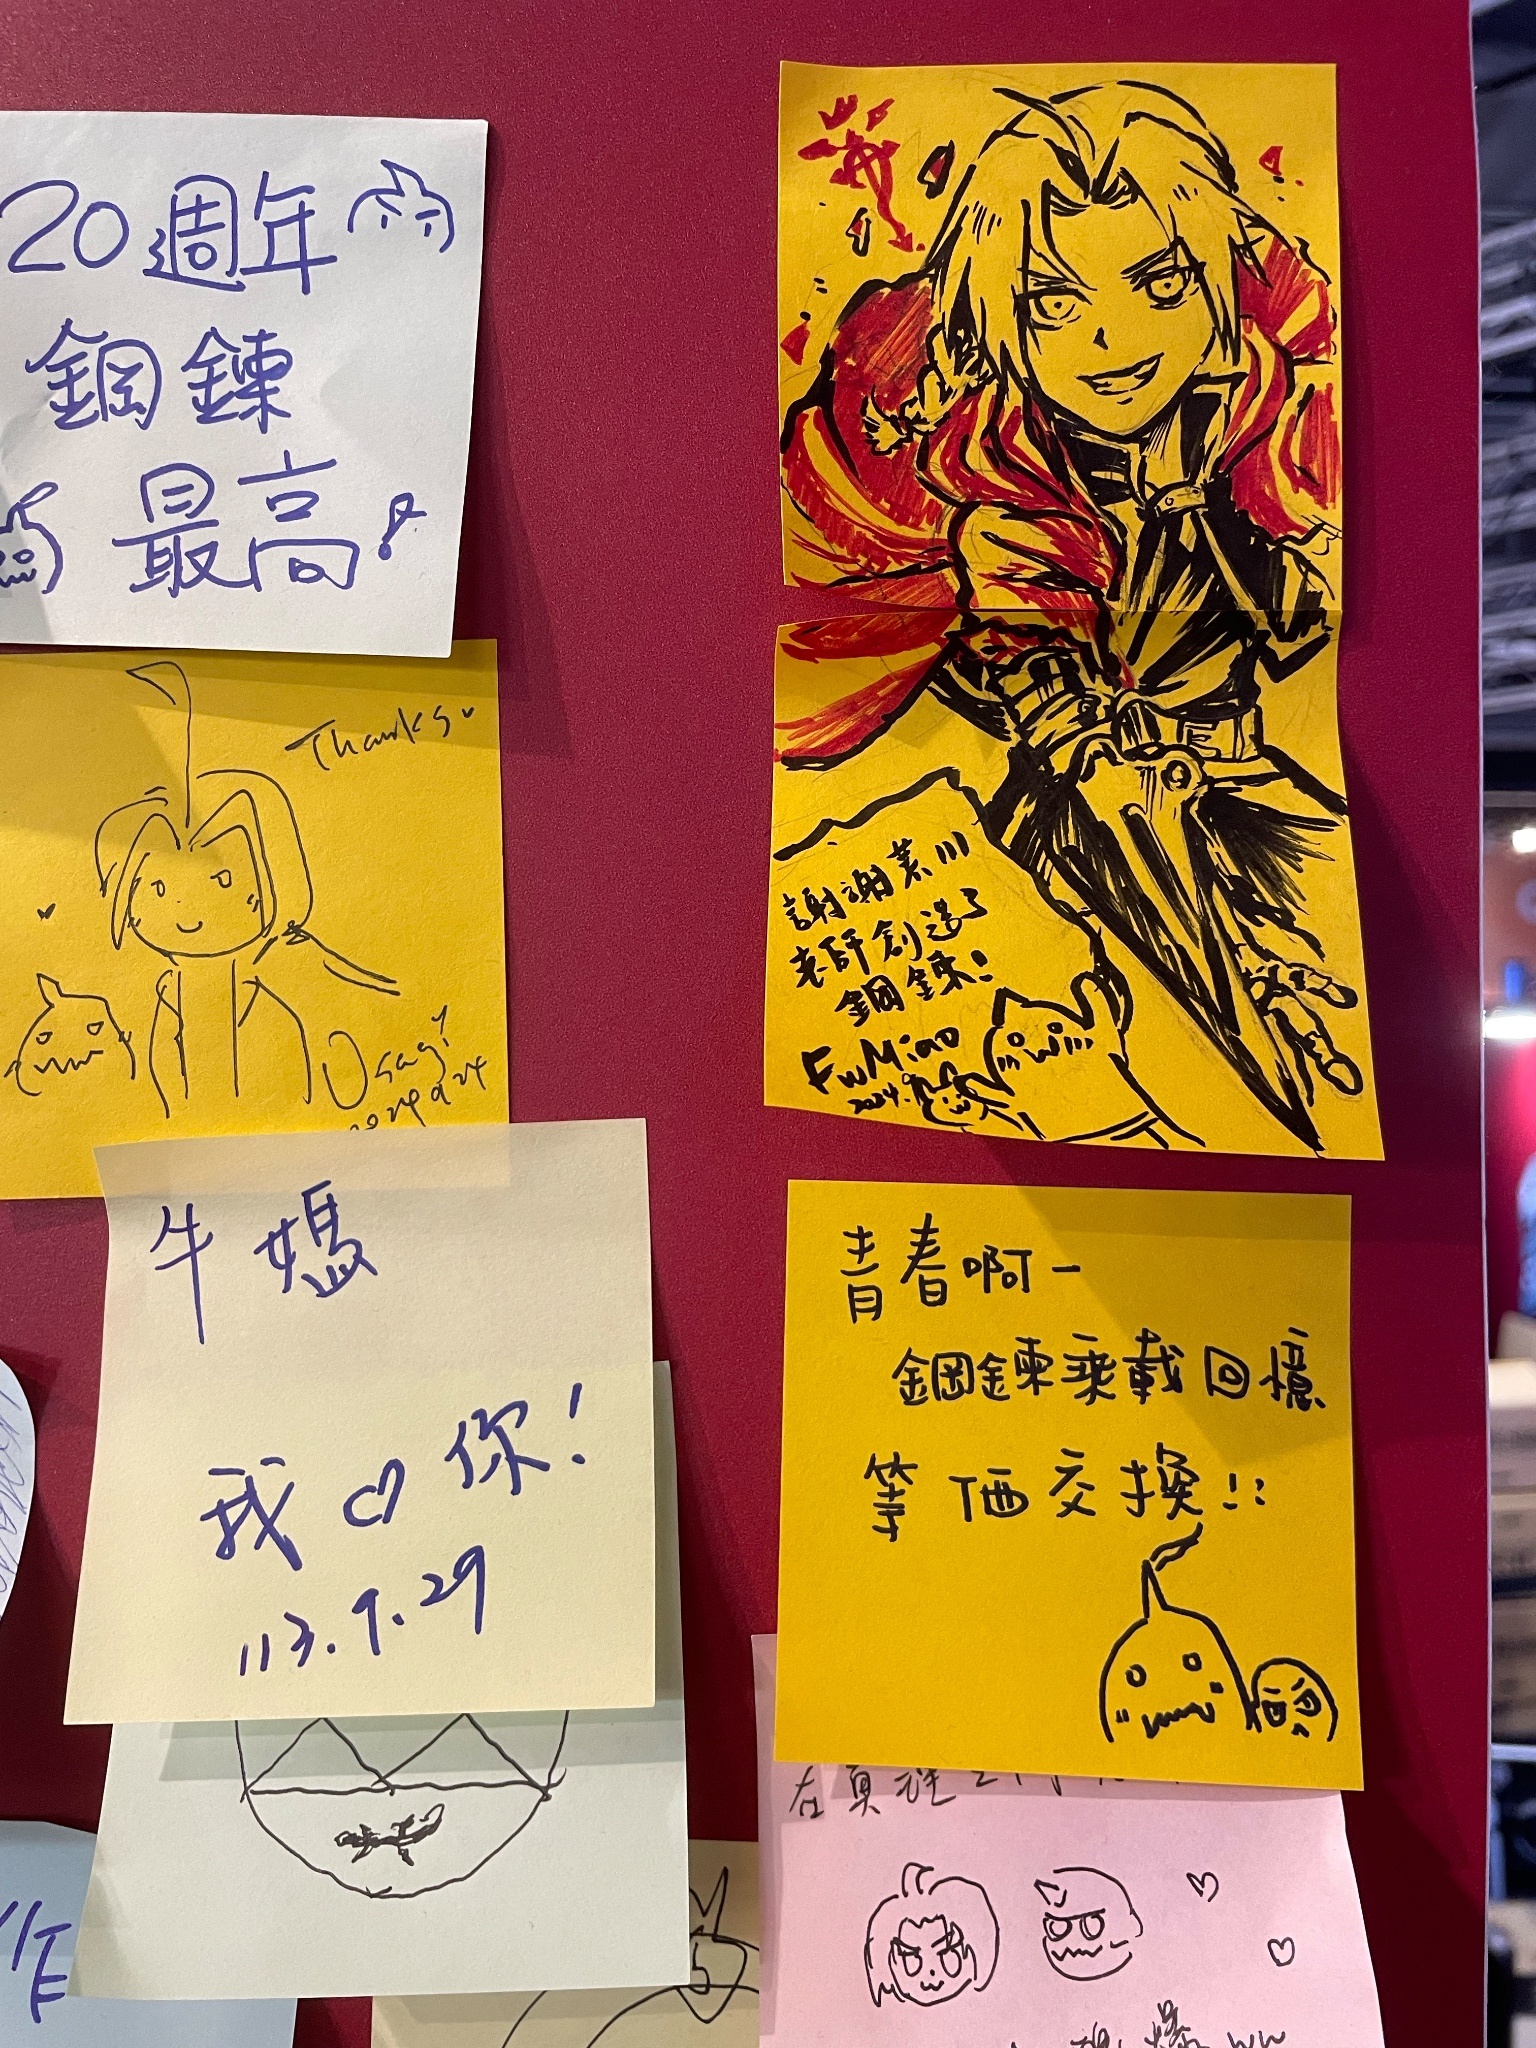 20週年
鋼鍊
最高!
Thanks
Osagi
2024 9 24
謝謝荒川
老師創造了
鋼鍊!
FwMiao
2024.9
牛媽
我♡你!
113.9.29
青春啊-
鋼鍊乘載回憶
等価交換!!
在真理之
爆 ww
作